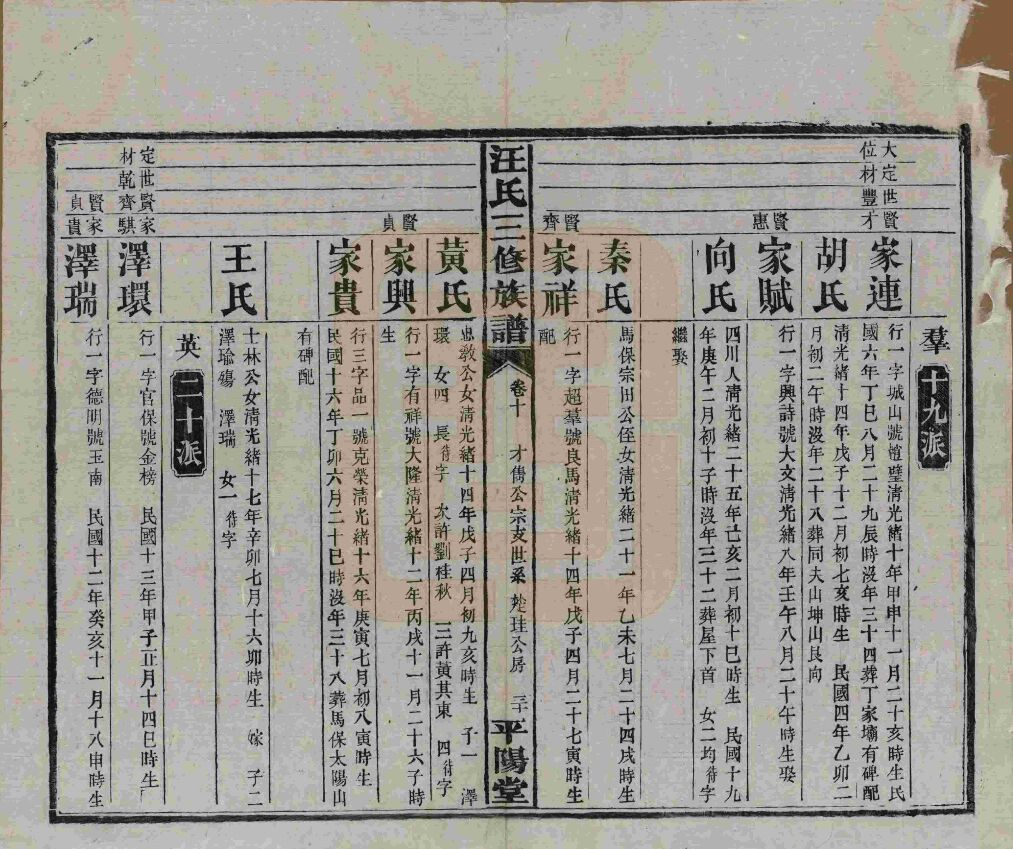 羣 十九派
大定世賢
位材豐才
家連
行一字城山號愷璧清光緒十年甲申十一月二十亥時生民
國六年丁巳八月二十九辰時沒年三十四葬丁家壩有碑配
胡氏
清光緒十四年戊子十二月初七亥時生 民國四年乙卯二
月初二午時沒年二十八葬同夫山坤山艮向
賢
惠
家賦
行一字興詩號大文清光緒八年壬午八月二十午時生娶
向氏
四川人清光緒二十五年己亥二月初十巳時生 民國十九
年庚午二月初十子時沒年三十二葬屋下首 女二均待字
繼娶
秦氏
馬保宗田公侄女清光緒二十一年乙未七月二十四戌時生
賢
齊
家祥
行一字超羣號良馬清光緒十四年戊子四月二十七寅時生
配
汪氏三修族譜 卷十 才儁公宗支世系 楚珪公房 三十 平陽堂
黃氏
忠敎公女清光緒十四年戊子四月初九亥時生 子一 澤
環 女四 長待字 次許劉桂秋 三許黃其東 四待字
賢
貞
家興
行一字有祥號大隆清光緒十二年丙戌十一月二十六子時
生
家貴
行三字品一號克榮清光緒十六年庚寅七月初八寅時生
民國十六年丁卯六月二十巳時沒年三十八葬馬保太陽山
有碑配
王氏
士林公女清光緒十七年辛卯七月十六卯時生 嫁 子二
澤瑜殤 澤瑞 女一待字
英 二十派
定世賢家
材乾齊騏
澤環
行一字官保號金榜 民國十三年甲子正月十四巳時生
賢家
貞貴
澤瑞
行一字德明號玉南 民國十二年癸亥十一月十八申時生